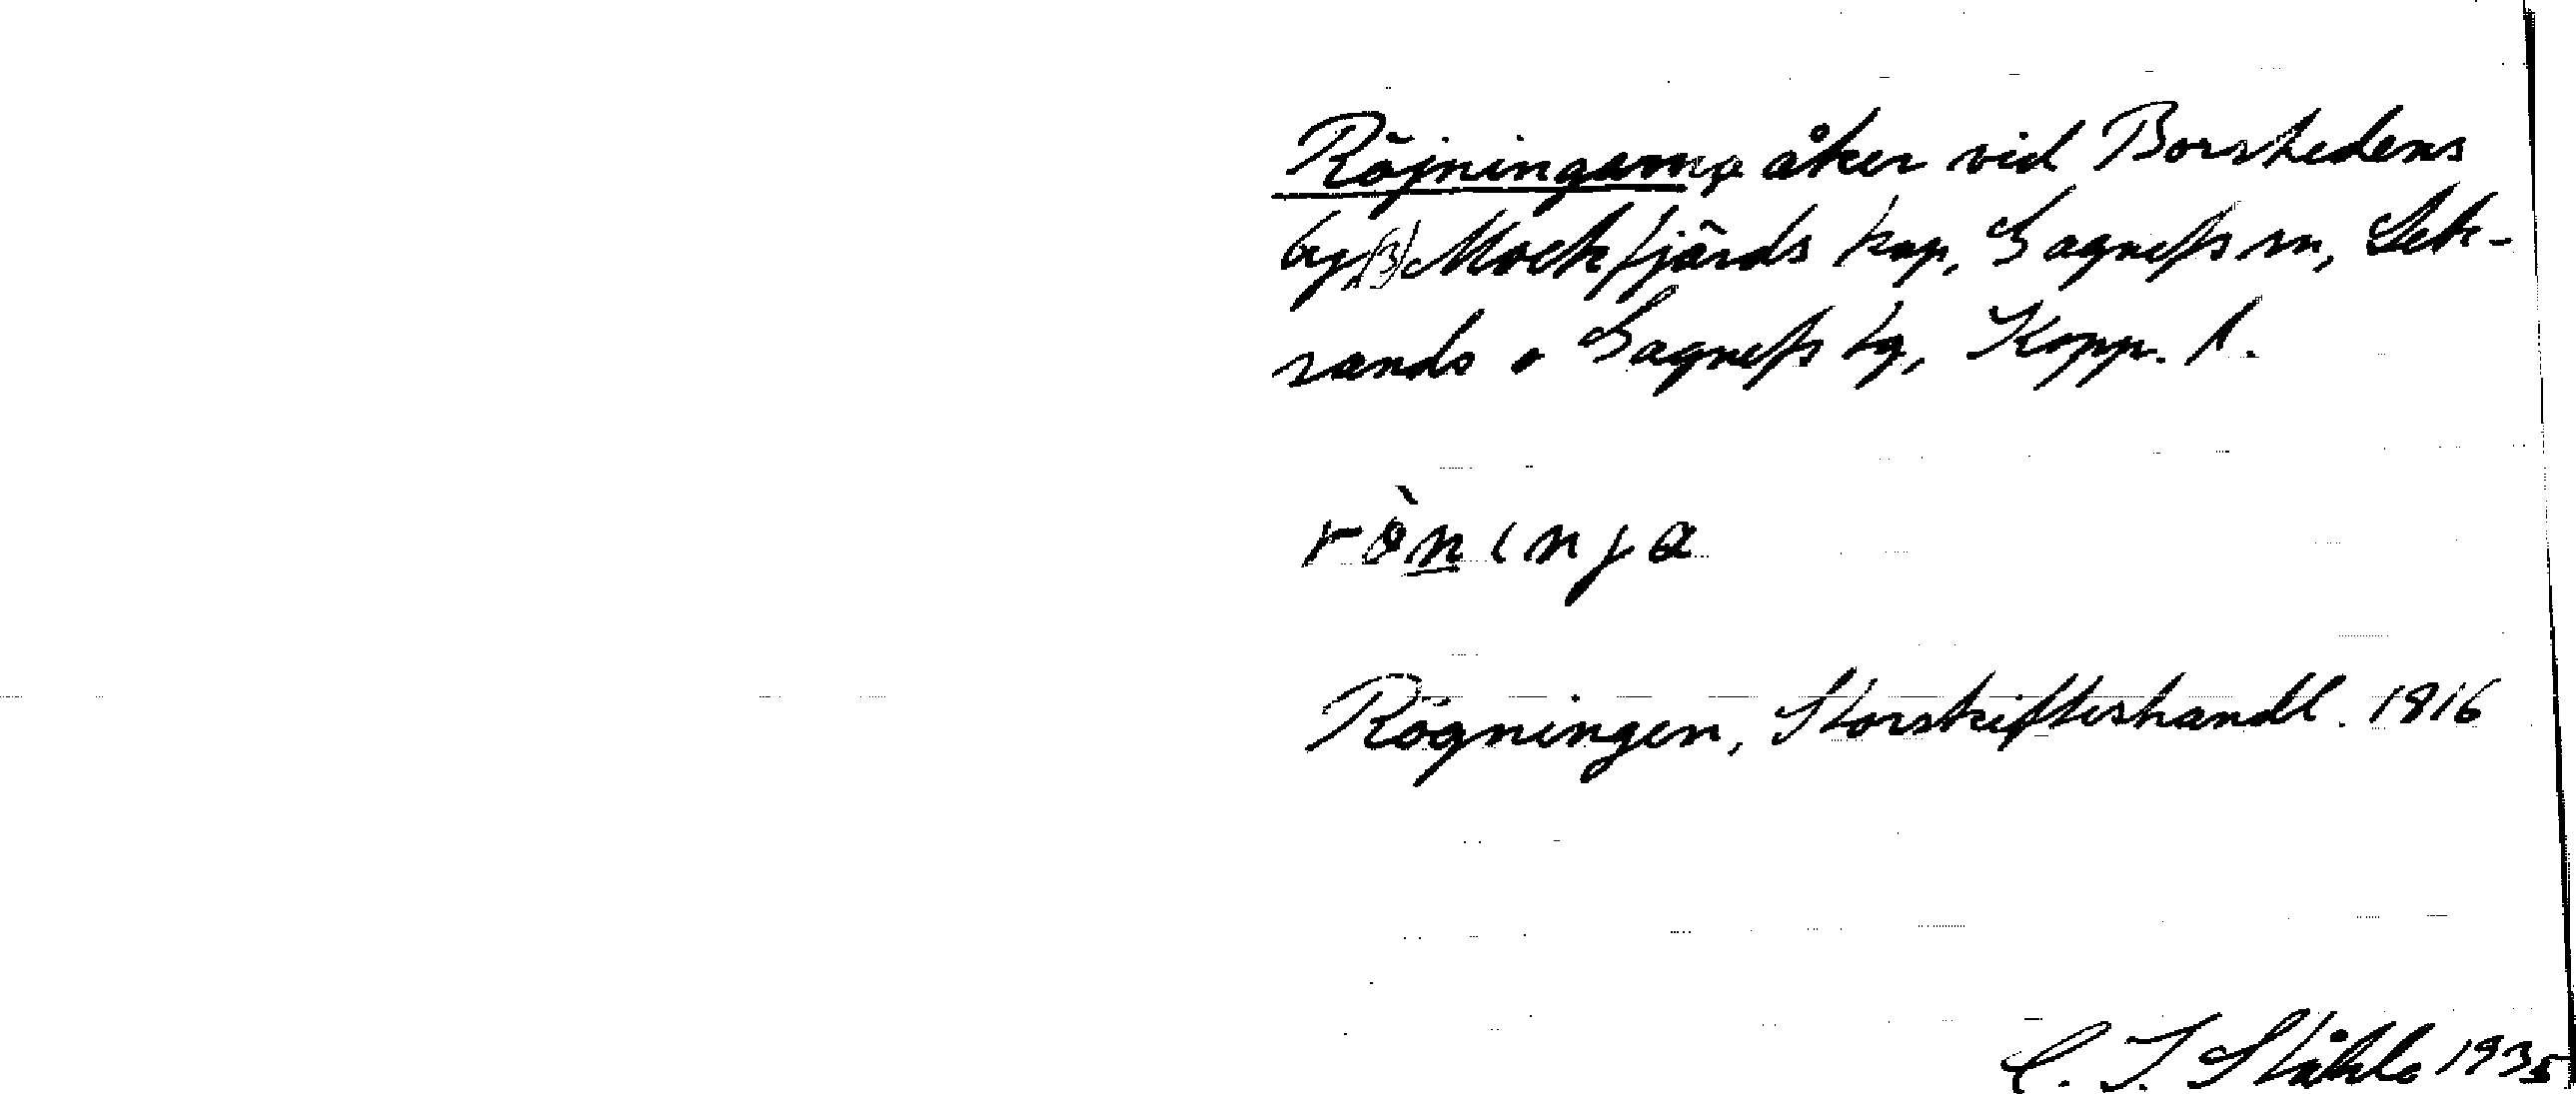 Röjningarna åker vid Borshedens
by (B) Mockfjärds kap, Gagnefs sn, Lek-
sands o Gagnefs tg, Kopp. l.
rö̀ninja
Rögningen, Storskifteshandl. 1816
C. I. Ståhle 1935